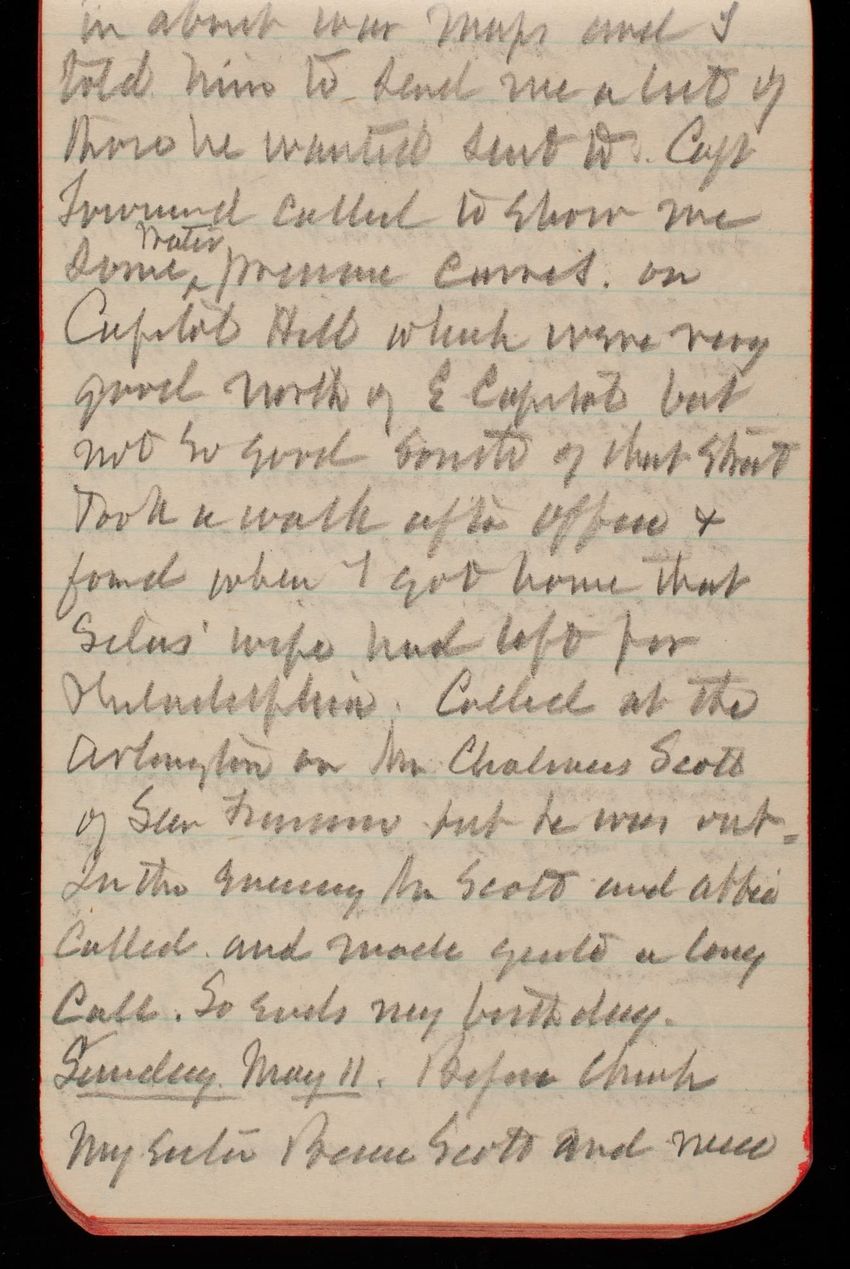 in about war maps and I
told him to send me a list of
those he wanted sent to. Capt
Townsend called to show me
some water pressure curves. on
Capitol Hill which were very
good north of E Capitol but
not so good south of that street
Took a walk after office &
found when I got home that
Silas' wife had left for
Philadelphia. Called at the
Arlington on Mr Chalmers Scott
of San Francisco but he was out-
In the evening Mr Scott and Abbie
Called. and made quite a long
Call. So ends my birthday.
Sunday May 11. Before Church
My sister Bessie Scott and